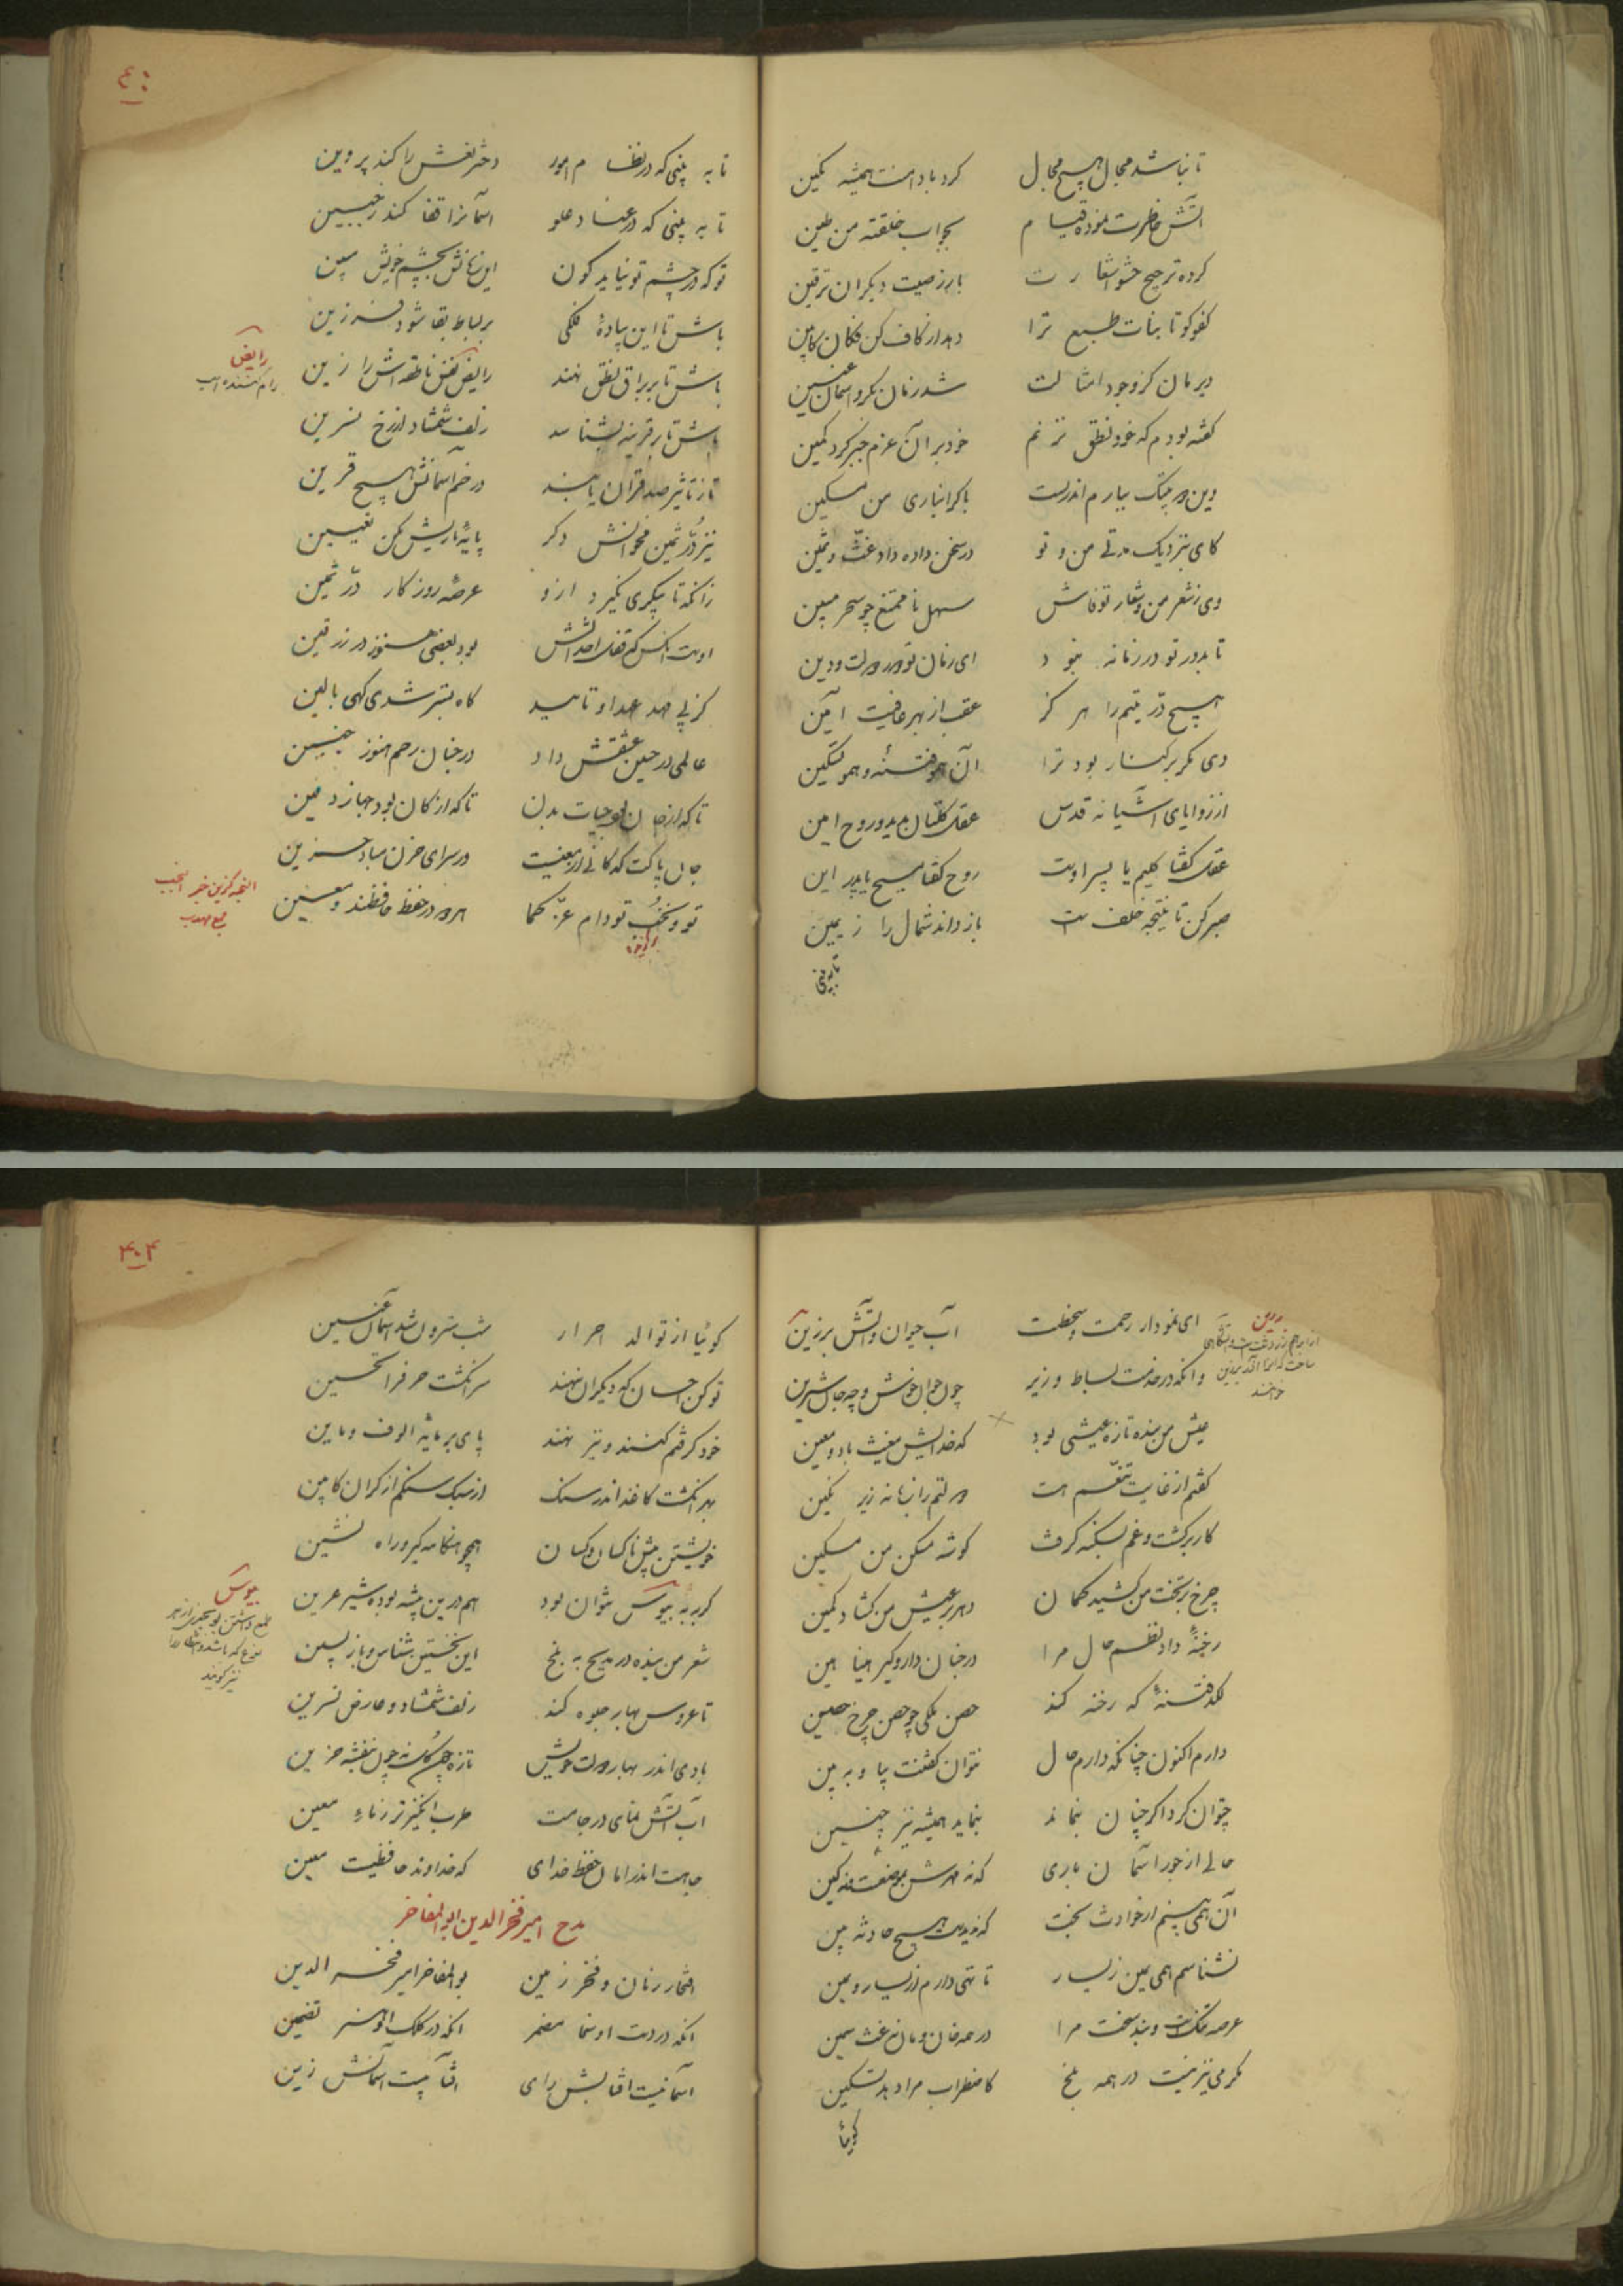 تا نباشد مجال هیچ محال    کرد بادامنت همیشه نکین
آتش خاطرت نموده قیام    بجواب خلقته من طین
کرده ترجیح حشو اشعارت    بارز صیت دیگران ترقین
کفو کو تا بنات طبع ترا    دهد از کاف کن فکان کابین
دیر مان کز وجود امثالت    شد زمان بکر و آسمان عنین
گفته بودم که خود نطق نزنم    خود بر آن عزم جبر کرد کمین
وین دو بیتک بیارم اندر است    با کرانباری من مسکین
کای بنزدیک مدتی من و تو    در سخن داده داد غث و ثمین
وی ز شعر من و شعار تو فاش    سهل ناممتنع چو سحر مبین
تا بدور تو در زمانه نبود    ای زمان تو دور دولت و دین
هیچ در یتیم را هرگز    عقب از بهر عاقبت آمین
دی مگر بر کنار بود ترا    آن همو فتنه و همو تسکین
از زوایای آشیانه قدس    عقل کلشان بدید و روح امین
عقل گفتا کلیم با پسر اوست    روح گفتا مسیح با پدر این
صبر کن تا نتیجه خلف ست    باز داند شمال را ز یمین
تا به بینی
٤٠
تا به بینی که در نظام امور    دختر نعش را کند پروین
تا به بینی که در عناد علو    آسمانرا قفا کند ز جبین
تو که در چشم تو نیاید کون    این زمانش بچشم خویش مبین
باش تا این پیاده فلکی    بر بساط بقا شود فرزین
باش تا بر براق نطق نهند    رایض نفس ناطقه اش را زین
رایض
رام کننده اسب
باش تا بر قرینه بشناسد    زلف شمشاد از رخ نسرین
تاز تاثیر صد قران یابند    در خم آسمانش هیچ قرین
نیز در ثمین مخوانش دگر    پایه تاریش مکن تعیین
زانکه تا پیکری نگیرد ازو    عرصه روزگار در ثمین
اوست آنکس که قفل احداثش    بود بعضی هنوز در زرقین
کز پی مهد عهد او تا مهد    گاه بستر شدی گهی بالین
عالمی در حنین عشقش داد    در جنان رحم هنوز جنین
تا که از جان بود حیات بدن    تا که از کان بود جهاز دفین
جان پاکت که کانی از معنیست    در سرای حزن مباد حزین
تو و نخب تو دام عز کما    هر دو در حفظ حافظند و معین
ای نمودار رحمت و سخطت    آب حیوان و آتش برزین
برزین
وانکه در خدمت بساط وزیر    چون جوان خوش و چه جان شیرین
خوانند
عیش من بنده تازه عیشی بود    که خدایش مغیث باد و معین
گفتم از غایت تنعم هست    دولتم را زمانه زیر نگین
کار برگشت و غم بسکنه گرفت    گوشه مسکن من مسکین
چرخ بر تخت من کشید کمان    دهر بر عیش من گشاد کمین
رخنه داد نظم حال مرا    در چنان دار و گیر هینا هین
لگد فتنه که رخنه کند    حصن ملکی چو حصن چرخ حصین
دارم اکنون چنانکه دارم حال    نتوان گفتنت بیا و به بین
چتوان کرد اگر چنان بنماند    بنماند همیشه نیز چنین
حالی از جور آسمان باری    که نه مهرش بموضعست نه کین
آن همی بینم از حوادث سخت    که ندیدست هیچ حادثه بین
نشناسم همی یمین ز یسار    تا تهی دارم از یسار و یمین
عرصه تنگست و بند سخت مرا    در همه خان و مان نه غث نه سمین
مگر می نیز نیست در همه بلخ    کاضطراب مرا دهد تسکین
گوئیا
٤٠٤
گوئیا از توالد احرار    شب سترون شد آسمان عنین
تو کن احسان که دیگران نهند    سر انگشت حر فرا تحسین
خود کرفتم کنند و نیز نهند    پای بر مایه الوف و مایین
بد انگشت کاغذ اندر سنگ    از سبک سنگم از گران کابین
خویشتن پیش ناکسان و کسان    همچو هنگامه گیر و راه نشین
گربه به بیوس نتوان بود    هم درین بیشه بوده شیر عرین
بیوس
نیز گویند
شعر من بنده در مدیح به بلخ    این نخستین شناس و باز پسین
تا عروس بهار جلوه کند    زلف شمشاد و عارض نسرین
بادی اندر بهار دولت خویش    تازه چون گل نه چون بنفشه حزین
آب آتش نمای در جامت    طرب انگیزتر ز ماء معین
جاهت اندر امان حفظ خدای    که خداوند حافظیست معین
مدح امیر فخر الدین ابو المفاخر
افتخار زمان و فخر زمین    بو المفاخر امیر فخر الدین
آنکه در دست او سخا مضمر    آنکه در کلک او هنر تضمین
آسمانیست آفتابش رای    آفتابیست آسمانش زین